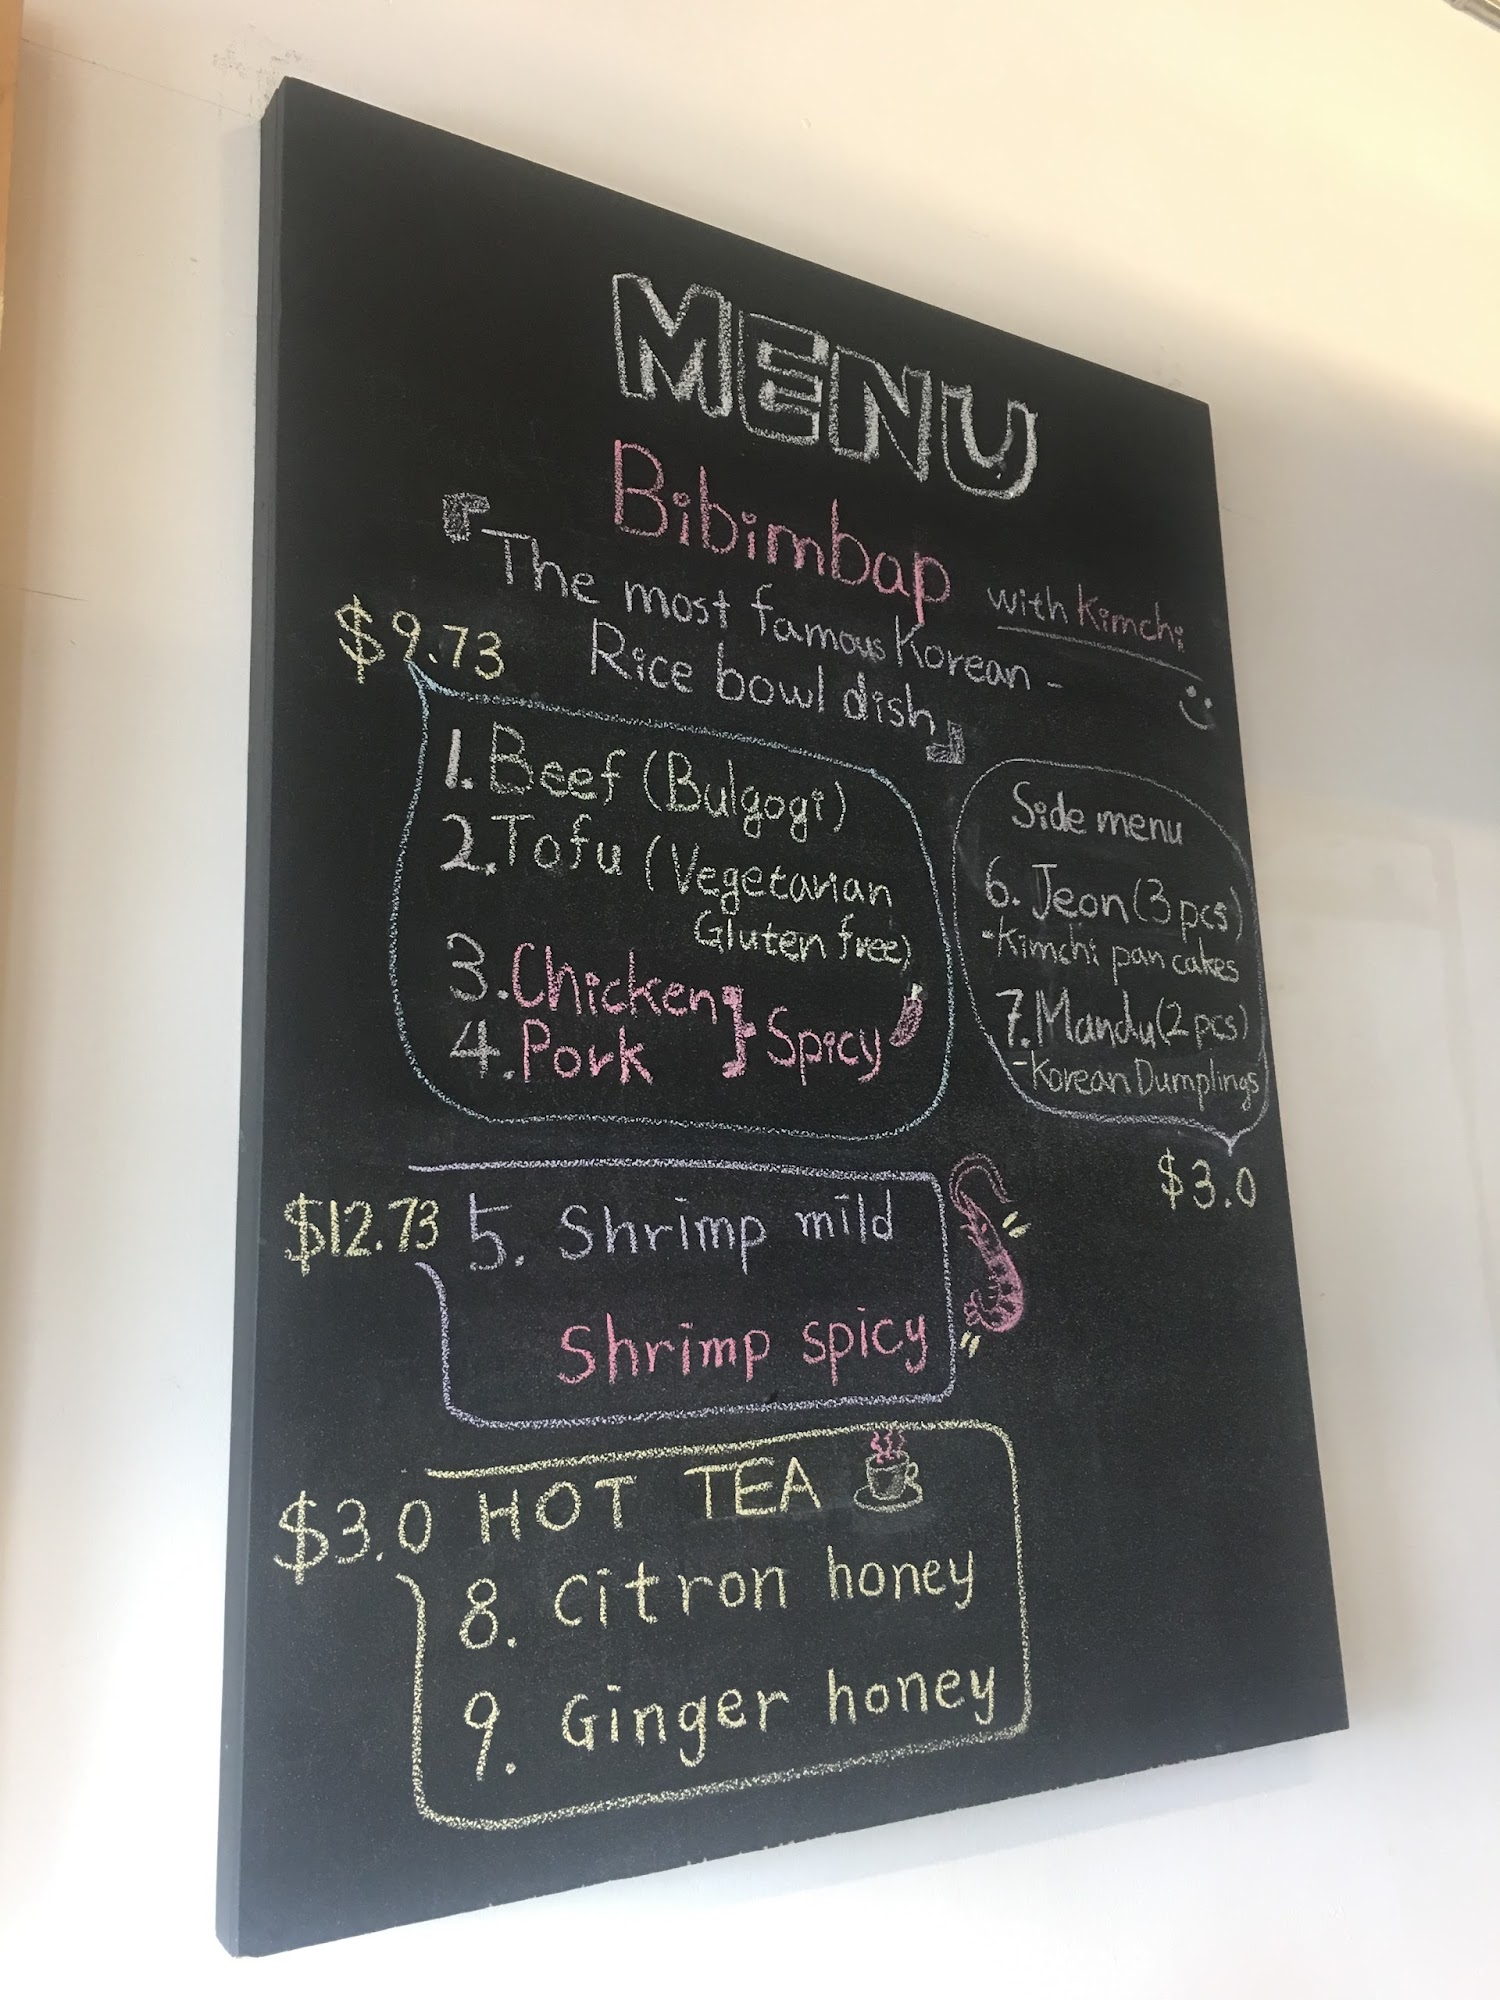 MENU
Bibimbap with Kimchi
『The most famous Korean -
Rice bowl dish』
$9.73
1. Beef (Bulgogi)
2. Tofu (Vegetarian
Gluten free)
3. Chicken
4. Pork } Spicy
Side menu
6. Jeon (3 pcs)
-Kimchi pan cakes
7. Mandu (2 pcs)
-Korean Dumplings
$3.0
$12.73 5. Shrimp mild
Shrimp spicy
$3.0 HOT TEA
8. Citron honey
9. Ginger honey